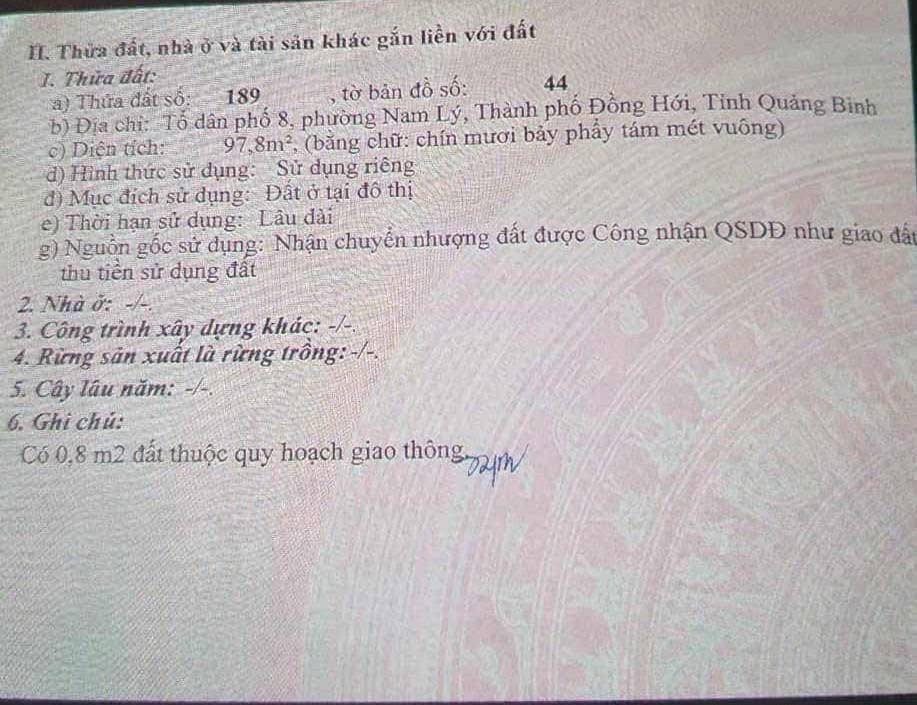 II. Thửa đất, nhà ở và tài sản khác gắn liền với đất
1. Thửa đất:
a) Thửa đất số: 189 , tờ bản đồ số: 44
b) Địa chỉ: Tổ dân phố 8, phường Nam Lý, Thành phố Đồng Hới, Tỉnh Quảng Bình
c) Diện tích: 97,8m², (bằng chữ: chín mươi bảy phẩy tám mét vuông)
d) Hình thức sử dụng: Sử dụng riêng
đ) Mục đích sử dụng: Đất ở tại đô thị
e) Thời hạn sử dụng: Lâu dài
g) Nguồn gốc sử dụng: Nhận chuyển nhượng đất được Công nhận QSDĐ như giao đất
thu tiền sử dụng đất
2. Nhà ở: -/-.
3. Công trình xây dựng khác: -/-.
4. Rừng sản xuất là rừng trồng: -/-.
5. Cây lâu năm: -/-.
6. Ghi chú:
Có 0,8 m2 đất thuộc quy hoạch giao thông.